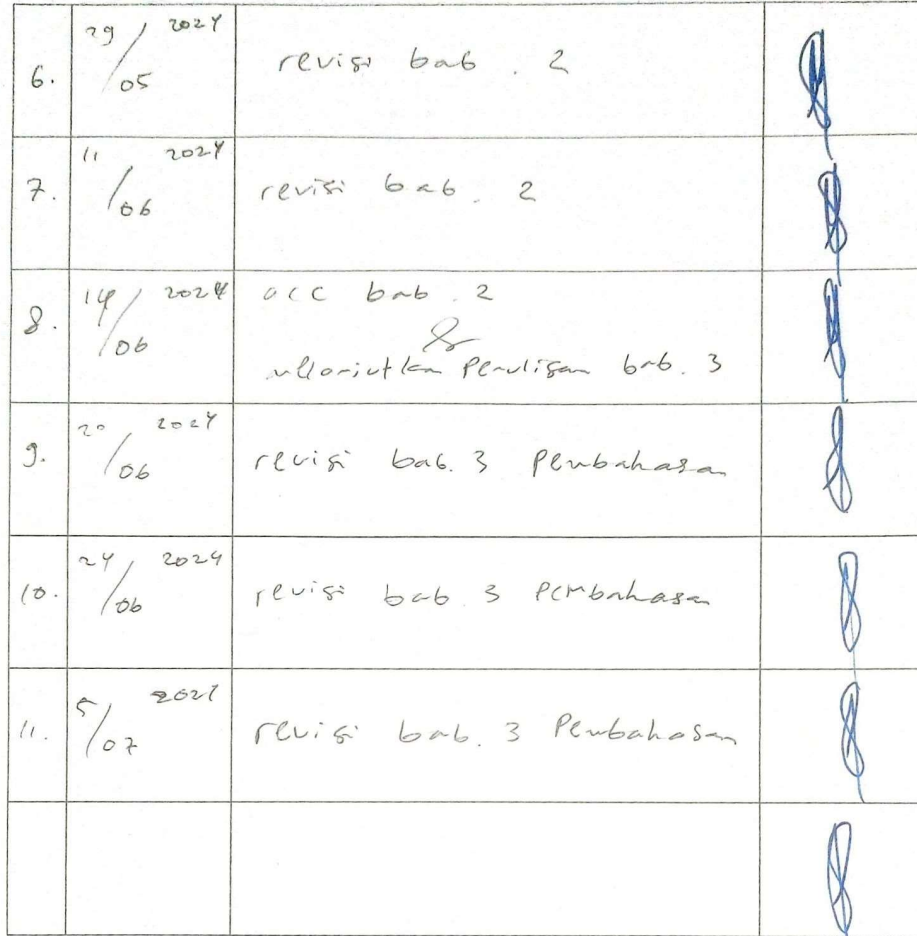 6. 29/05 2024 revisi bab. 2
7. 11/06 2024 revisi bab. 2
8. 14/06 2024 acc bab. 2
&
melanjutkan penulisan bab. 3
9. 20/06 2024 revisi bab. 3 Pembahasan
10. 24/06 2024 revisi bab 3 Pembahasan
11. 5/07 2024 revisi bab. 3 Pembahasan